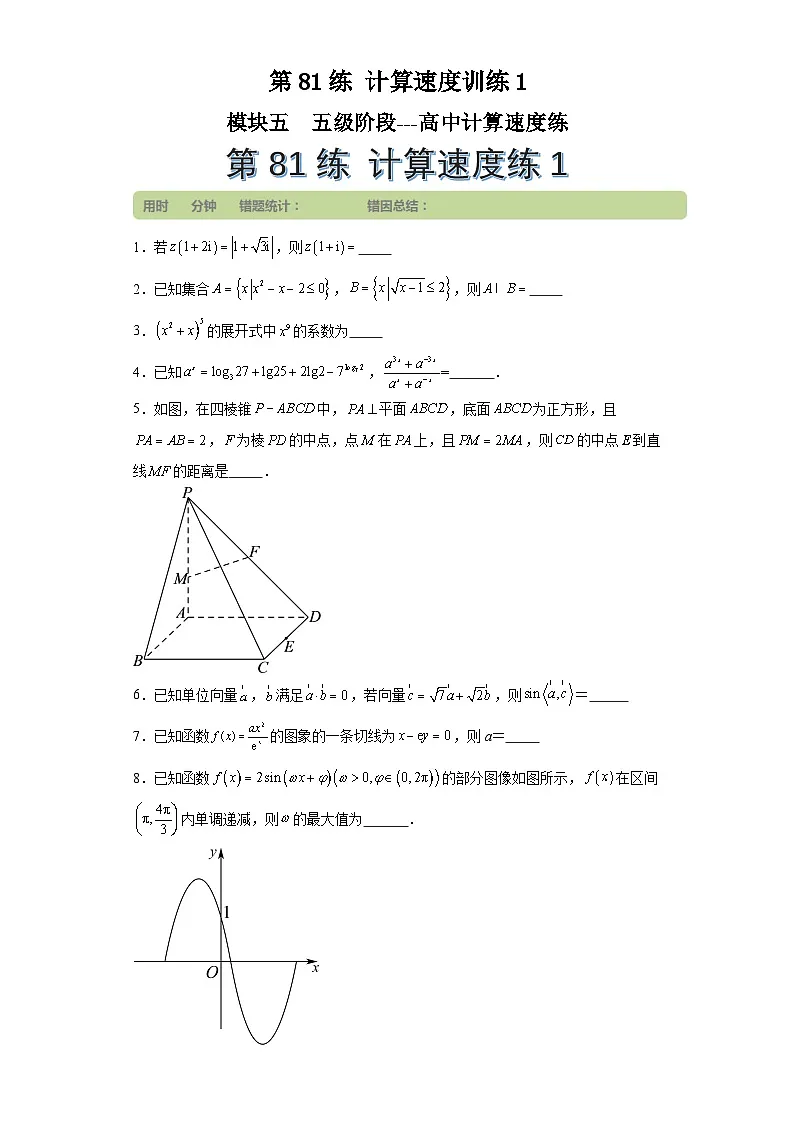 第81练 计算速度训练1
模块五 五级阶段---高中计算速度练
第81练 计算速度练1
用时 分钟 错题统计： 错因总结：
1．若z(1+2i)=|1+√3i|，则z(1+i)=_____
2．已知集合A={x|x²−x−2≤0}，B={x|√(x−1)≤2}，则A I B=_____
3．(x²+x)⁵的展开式中x⁹的系数为_____
4．已知aˣ=log₃27+lg25+2lg2−7^(log₇2)，(a³ˣ+a⁻³ˣ)/(aˣ+a⁻ˣ)=______．
5．如图，在四棱锥P−ABCD中，PA⊥平面ABCD，底面ABCD为正方形，且
PA=AB=2，F为棱PD的中点，点M在PA上，且PM=2MA，则CD的中点E到直
线MF的距离是_____．
P
F
M
A
D
E
B
C
6．已知单位向量a，b满足a·b=0，若向量c=√7a+√2b，则sin⟨a,c⟩=_____
7．已知函数f(x)=ax²/eˣ的图象的一条切线为x−ey=0，则a=_____
8．已知函数f(x)=2sin(ωx+φ)(ω>0,φ∈(0,2π))的部分图像如图所示，f(x)在区间
(π,4π/3)内单调递减，则ω的最大值为______．
y
1
O
x